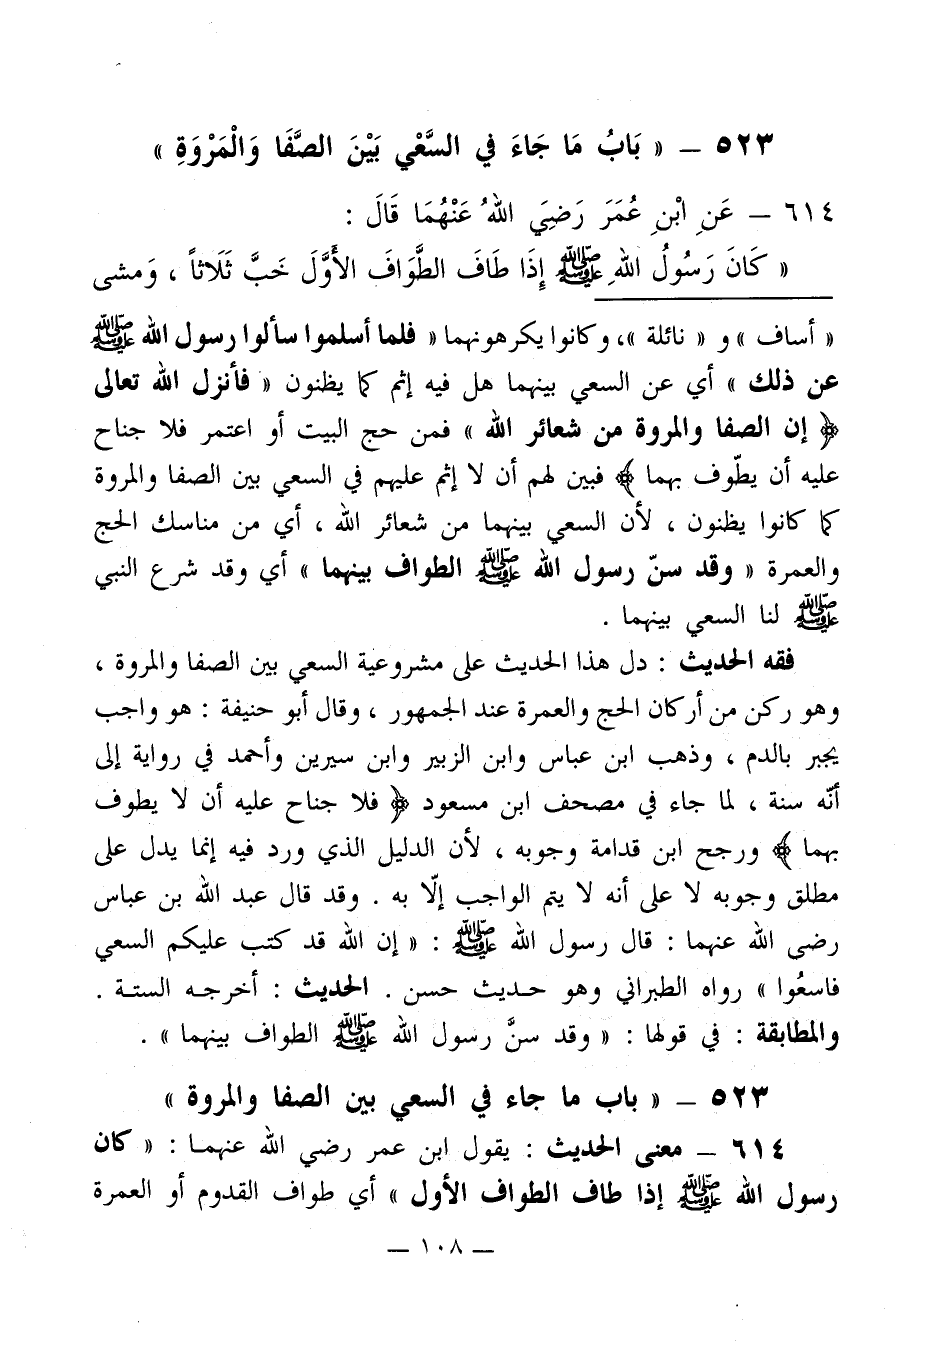 ٥٢٣ – « بَابُ مَا جَاءَ في السَّعْي بَيْنَ الصَّفَا وَالْمَرْوَةِ »
٦١٤ – عَنِ ابْنِ عُمَرَ رَضِيَ اللهُ عَنْهُمَا قَالَ :
« كَانَ رَسُولُ اللهِ ﷺ إِذَا طَافَ الطَّوَافَ الأَوَّلَ خَبَّ ثَلَاثاً ، وَمشى
« أساف » و « نائلة »، وكانوا يكرهونهما « فلما أسلموا سألوا رسول الله ﷺ
عن ذلك » أي عن السعي بينهما هل فيه إثم كما يظنون « فأنزل الله تعالى
﴿ إن الصفا والمروة من شعائر الله » فمن حج البيت أو اعتمر فلا جناح
عليه أن يطّوف بهما ﴾ فبين لهم أن لا إثم عليهم في السعي بين الصفا والمروة
كما كانوا يظنون ، لأن السعي بينهما من شعائر الله ، أي من مناسك الحج
والعمرة « وقد سنّ رسول الله ﷺ الطواف بينهما » أي وقد شرع النبي
ﷺ لنا السعي بينهما .
فقه الحديث : دل هذا الحديث على مشروعية السعي بين الصفا والمروة ،
وهو ركن من أركان الحج والعمرة عند الجمهور ، وقال أبو حنيفة : هو واجب
يجبر بالدم ، وذهب ابن عباس وابن الزبير وابن سيرين وأحمد في رواية إلى
أنّه سنة ، لما جاء في مصحف ابن مسعود ﴿ فلا جناح عليه أن لا يطوف
بهما ﴾ ورجح ابن قدامة وجوبه ، لأن الدليل الذي ورد فيه إنما يدل على
مطلق وجوبه لا على أنه لا يتم الواجب إلّا به . وقد قال عبد الله بن عباس
رضى الله عنهما : قال رسول الله ﷺ : « إن الله قد كتب عليكم السعي
فاسعُوا » رواه الطبراني وهو حديث حسن . الحديث : أخرجه الستة .
والمطابقة : في قولها : « وقد سنَّ رسول الله ﷺ الطواف بينهما » .
٥٢٣ – « باب ما جاء في السعي بين الصفا والمروة »
٦١٤ – معنى الحديث : يقول ابن عمر رضي الله عنهما : « كان
رسول الله ﷺ إذا طاف الطواف الأول » أي طواف القدوم أو العمرة
– ١٠٨ –